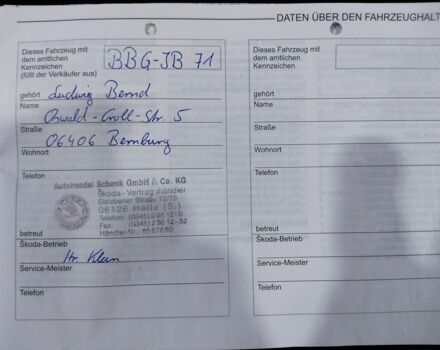 DATEN ÜBER DEN FAHRZEUGHALT
Dieses Fahrzeug mit
dem amtlichen
Kennzeichen
(füllt der Verkäufer aus)
BBG-JB 71
gehört Ludwig Bernd
Name
Oswald-Croll-Str. 5
Straße
06406 Bernburg
Wohnort
Telefon
Autohandel Schenk GmbH & Co. KG
Škoda - Vertragshändler
Eislebener Straße 72/73
06126 Halle (S.)
Telefon: (0345) 2 98 12-0
Fax: (0345) 2 98 12-52
Händler-Nr.: 65 67850
betreut
Škoda-Betrieb
Hr. Klein
Service-Meister
Telefon
Dieses Fahrzeug mit
dem amtlichen
Kennzeichen
gehört
Name
Straße
Wohnort
Telefon
betreut
Škoda-Betrieb
Service-Meister
Telefon